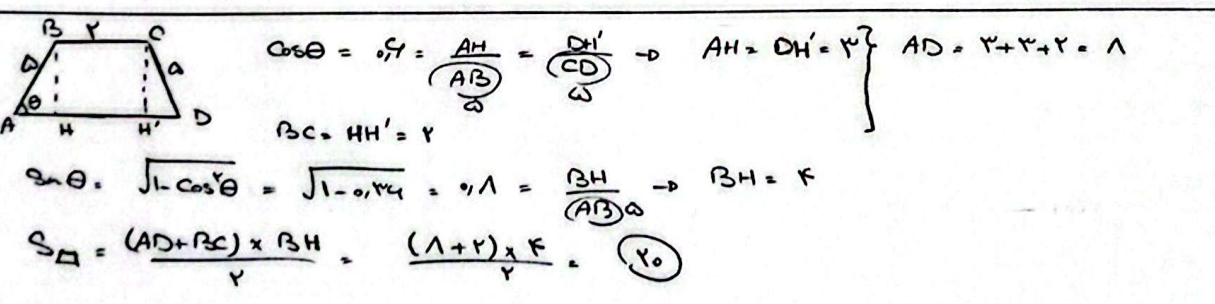 B ۲ C
۵ ۵
A θ H H' D
Cosθ = ۰,۶ = AH/AB = DH'/CD → AH = DH' = ۳ } AD = ۳+۳+۲ = ۸
۵ ۵
BC = HH' = ۲
Sinθ = √(1-Cos²θ) = √(1-۰,۳۶) = ۰,۸ = BH/AB → BH = ۴
۵
S = (AD+BC) × BH / ۲ = (۸+۲) × ۴ / ۲ = ۲۰